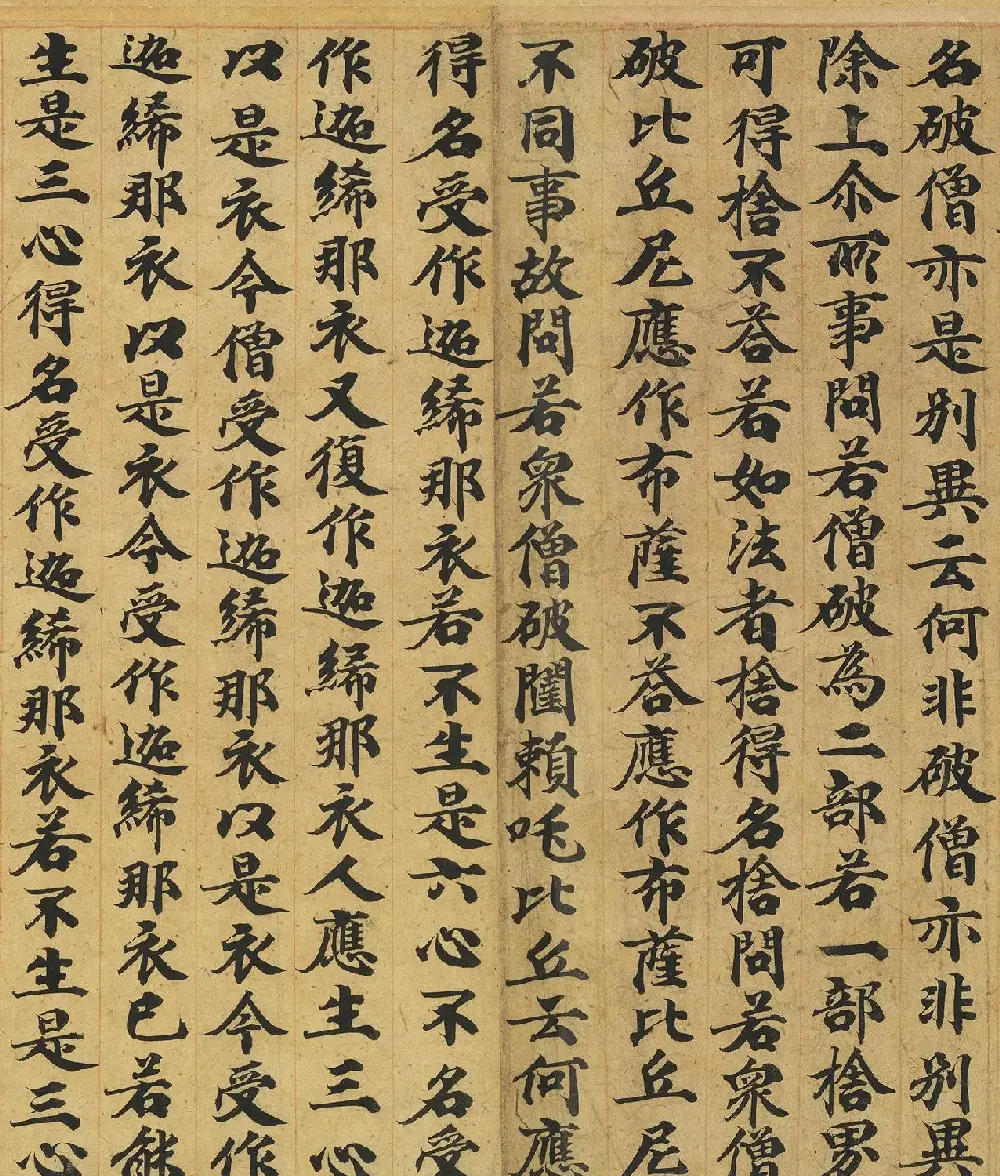 名破僧亦是別異云何非破僧亦非別異
除上尒所事問若僧破為二部若一部捨界
可得捨不荅若如法者捨得名捨問若衆僧
破比丘尼應作布薩不荅應作布薩比丘尼
不同事故問若衆僧破闥賴吒比丘云何應
得名受作迦絺那衣若不生是六心不名受
作迦絺那衣又復作迦絺那衣人應生三心
以是衣今僧受作迦絺那衣以是衣今受作
迦絺那衣以是衣今受作迦絺那衣已若能
生是三心得名受作迦絺那衣若不生是三心